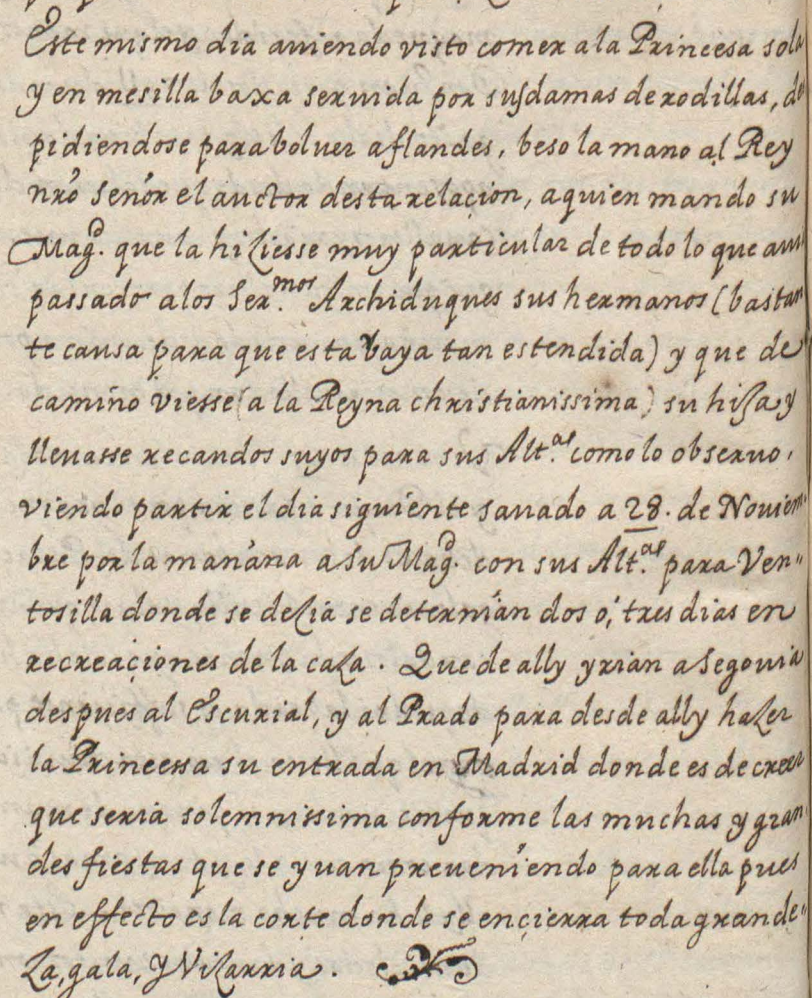 Este mismo dia auiendo visto comer a la Princesa sola
y en mesilla baxa seruida por sus damas de rodillas, de
pidiendose para boluer a flandes, beso la mano al Rey
nrõ Señor el auctor desta relaçion, a quien mando su
Magd. que la hiziesse muy particular de todo lo que aui
passado a los Ser.mos Archiduques sus hermanos (bastan
te causa para que esta vaya tan estendida) y que de
camino viesse (a la Reyna christianissima) su hija y
lleuasse recaudos suyos para sus Alt.as como lo obseruo,
viendo partir el dia siguiente sauado a 28. de Nouiem
bre por la mañana a su Magd. con sus Alt.as para Ven"
tosilla donde se dezia se deternian dos o, tres dias en
recreaçiones de la caza. Que de ally yrian a Segouia
despues al Escurial, y al Prado para desde ally hazer
la Princessa su entrada en Madrid donde es de creer
que seria solemnissima conforme las muchas y gran
des fiestas que se yuan preueniendo para ella pues
en effecto es la corte donde se ençierra toda grande"
za, gala, y Vizarria.